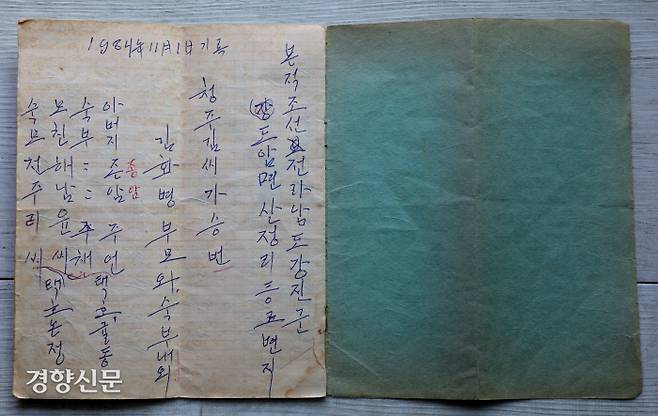 1984年 11月 1日 기록
본적 조선 전라남도 강진군
도암면 산정리 등 변지
청주김씨가승번
김화병 부모와 숙부내외
아버지 존암 종암 주언 택호 굴동
숙부 〃 〃 주채
모친 해남윤씨 택호 논정
숙모 전주리씨
경향신문